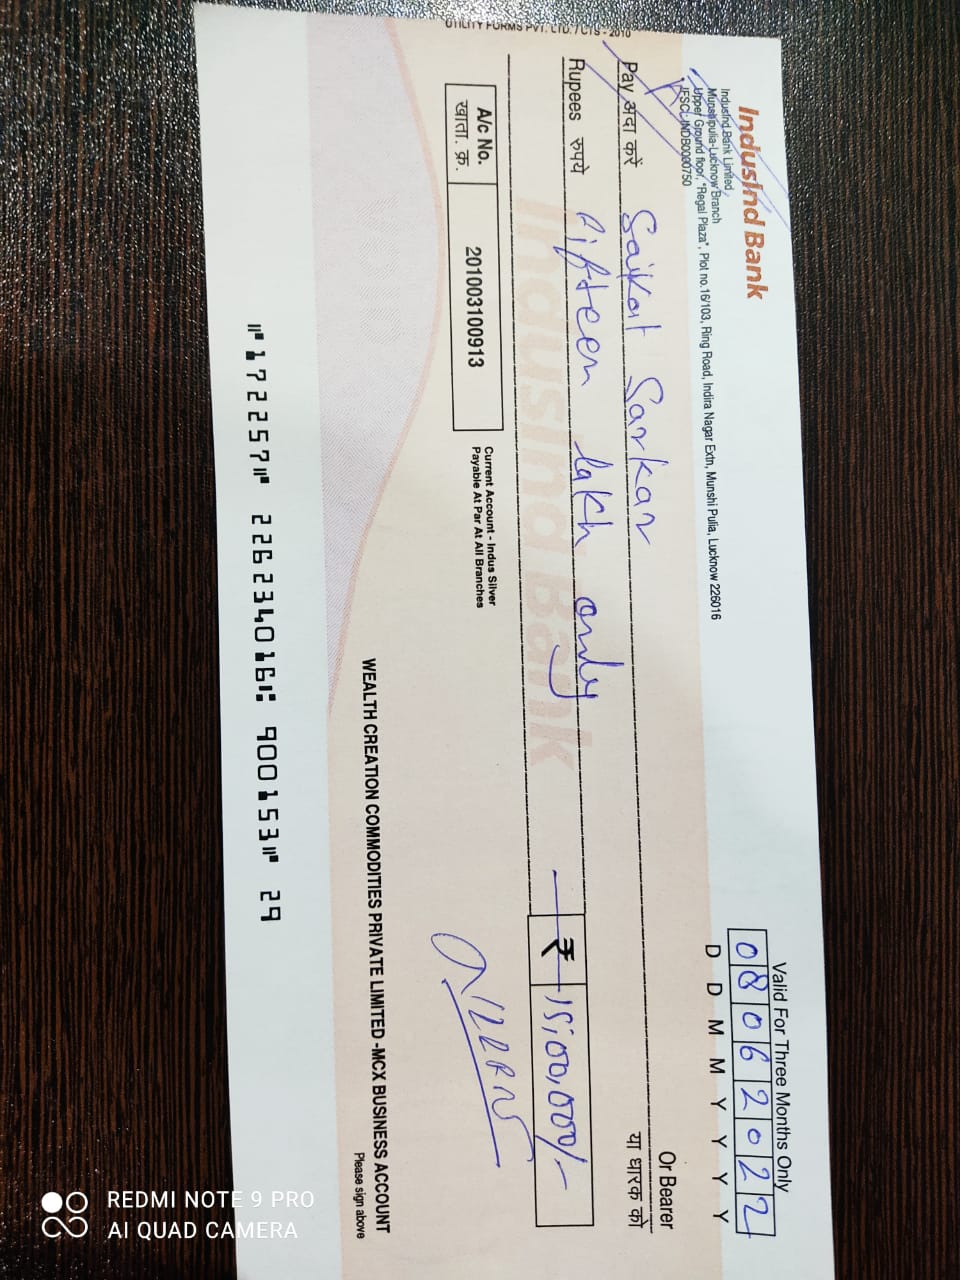 IndusInd Bank
IndusInd Bank Limited,
Munshipulia-Lucknow Branch
Upper Ground floor, "Regal Plaza", Plot no.16/103, Ring Road, Indira Nagar Extn, Munshi Pulia, Lucknow 226016
IFSC: INDB0000750
Valid For Three Months Only
0 8 0 6 2 0 2 2
D D M M Y Y Y Y
Pay अदा करें Saikat Sarkar
Or Bearer
या धारक को
Rupees रुपये fifteen lakh only
₹ 15,00,000/-
A/c No.
खाता. क्र.
201003100913
Current Account - Indus Silver
Payable At Par At All Branches
IndusInd Bank
VOID
WEALTH CREATION COMMODITIES PRIVATE LIMITED -MCX BUSINESS ACCOUNT
Please sign above
⑈172257⑈ 226234016⑆ 900153⑈ 29
UTILITY FORMS PVT. LTD. / CTS - 2010
REDMI NOTE 9 PRO
AI QUAD CAMERA